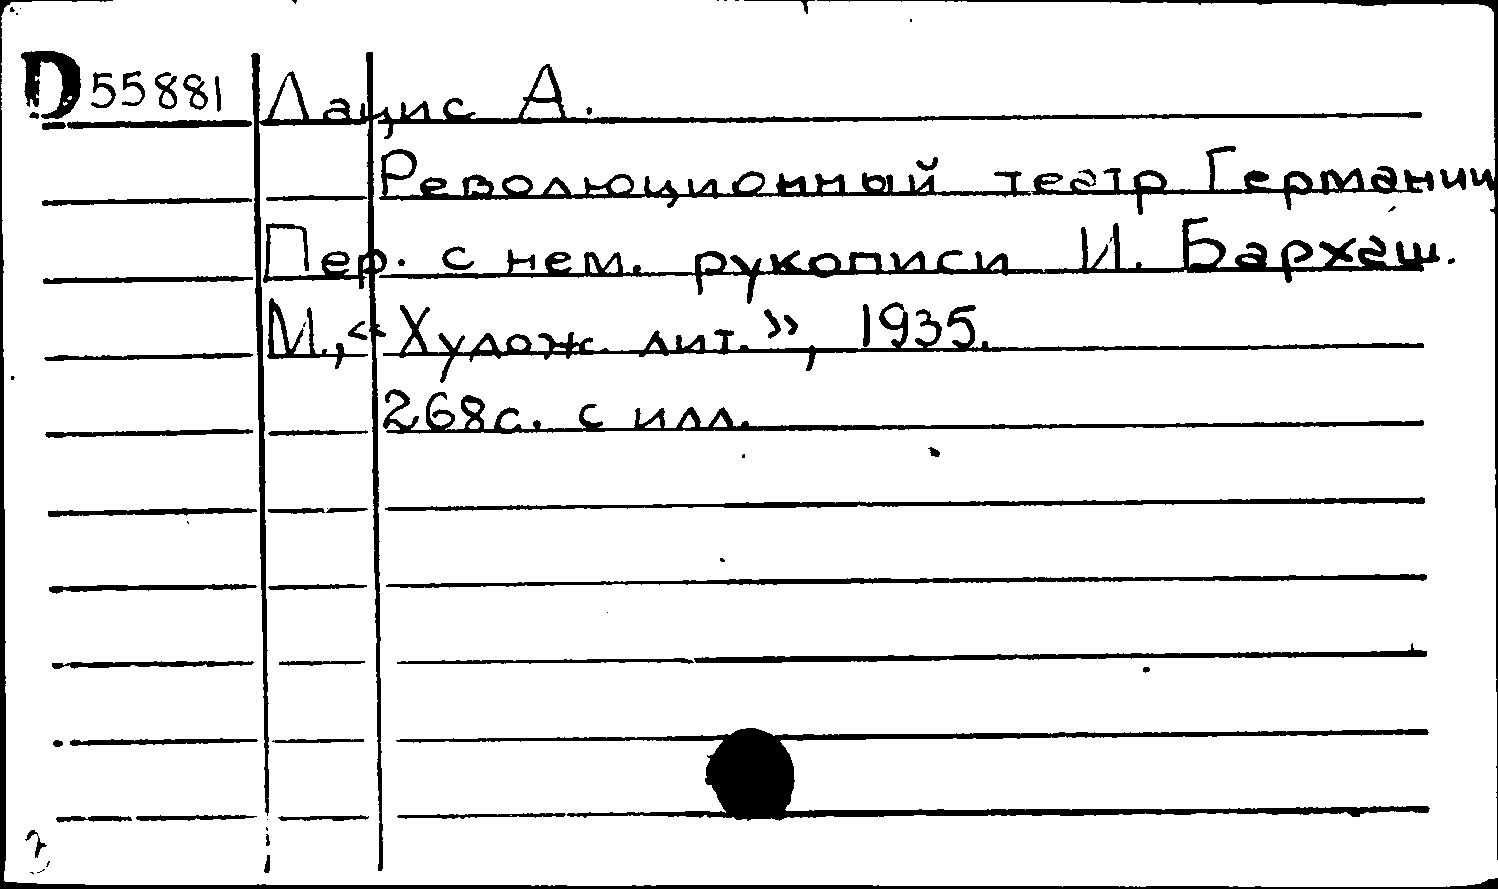 D 55881 Лацис А.
Революционный театр Германии
Пер. с нем. рукописи И. Бархаш.
М., «Худож. лит.», 1935.
268с. с илл.